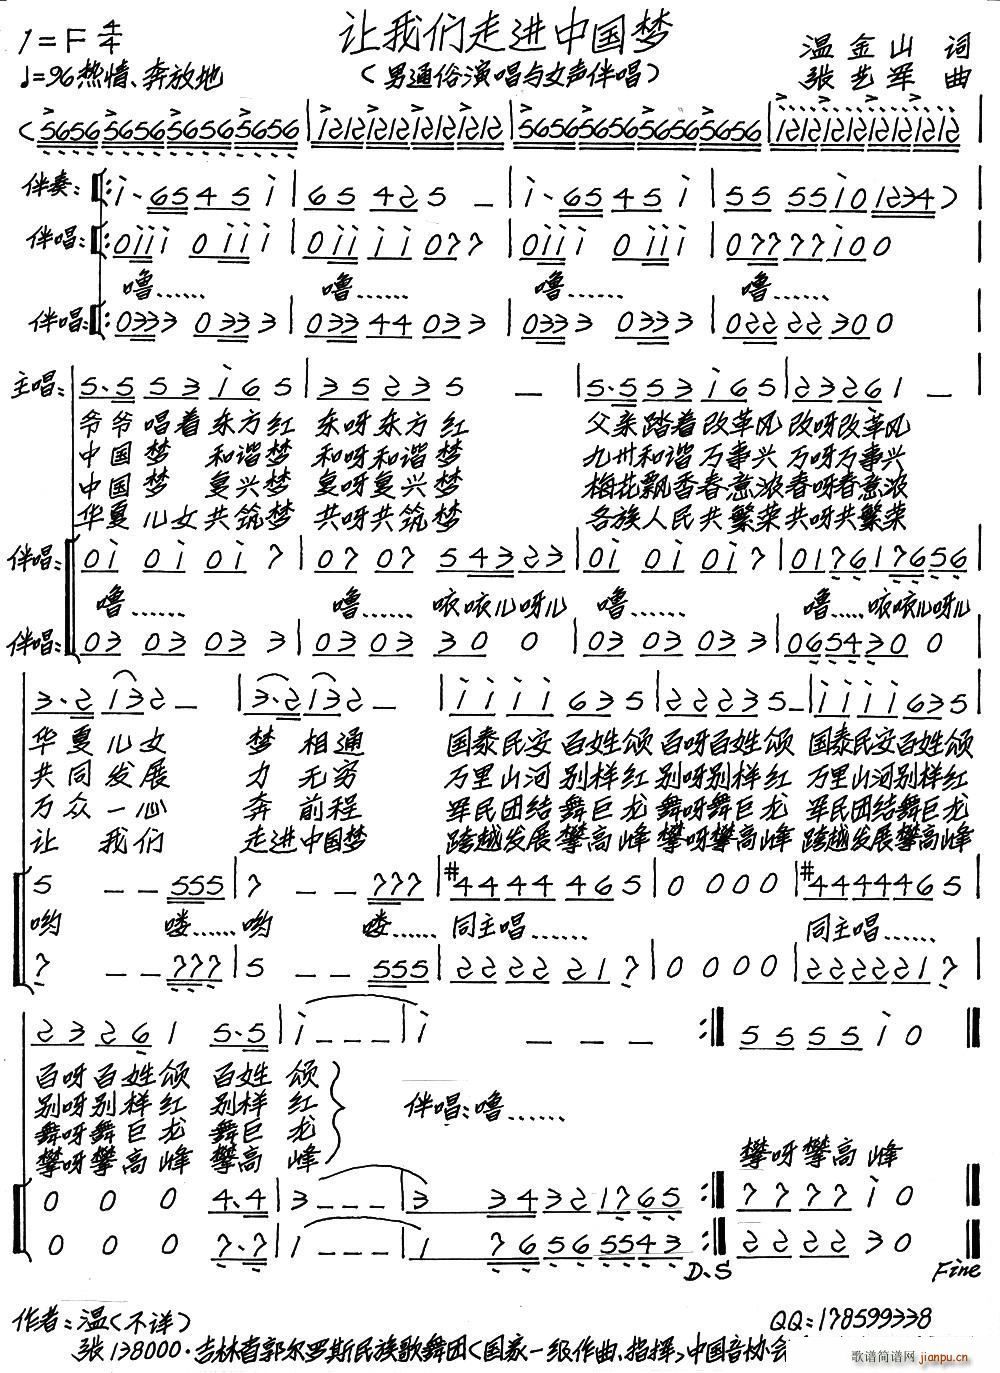 让我们走进中国梦
1=F 4/4
♩=96 热情、奔放地
(男通俗演唱与女声伴唱)
温金山 词
张艺军 曲
(5656 5656 5656 5656 | 1212 1212 1212 1212 | 5656 5656 5656 5656 | 1212 1212 1212 1212 |
伴奏: ‖: i·65 45 i | 65 425 － | i·65 45 i | 55 55 i0 1234) |
伴唱: ‖: 0iii 0iii | 0iii i 077 | 0iii 0iii | 0777 7i00 |
噜…… 噜…… 噜…… 噜……
伴唱: ‖: 0333 0333 | 03344 033 | 0333 0333 | 0222 2300 |
主唱: 5·5 53 i65 | 35 235 － | 5·5 53 i65 | 23261 － |
爷爷唱着东方红 东呀东方红 父亲踏着改革风 改呀改革风
中国梦 和谐梦 和呀和谐梦 九州和谐万事兴 万呀万事兴
中国梦 复兴梦 复呀复兴梦 梅花飘香春意浓 春呀春意浓
华夏儿女共筑梦 共呀共筑梦 各族人民共繁荣 共呀共繁荣
伴唱: 0i 0i 0i 7 | 07 07 543 23 | 0i 0i 0i 7 | 0176 17656 |
噜…… 噜…… 咴咴儿呀儿 噜…… 噜…… 咴咴儿呀儿
伴唱: 03 03 03 3 | 03 03 30 0 | 03 03 03 3 | 065430 0 |
3·2 132 － | 3·2 132 － | i i i i 635 | 22 22 35 － | i i i i 635 |
华夏儿女 梦相通 国泰民安百姓颂 百呀百姓颂 国泰民安百姓颂
共同发展 力无穷 万里山河别样红 别呀别样红 万里山河别样红
万众一心 奔前程 军民团结舞巨龙 舞呀舞巨龙 军民团结舞巨龙
让我们 走进中国梦 跨越发展攀高峰 攀呀攀高峰 跨越发展攀高峰
5 － － 555 | 7 － － 777 | #44 44 465 | 0 0 0 0 | #44 44 465 |
哟 喽…… 哟 喽…… 同主唱…… 同主唱……
7 － － 777 | 5 － － 555 | 22 22 217 | 0 0 0 0 | 22 22 217 |
23 26 1 5·5 | i － － － | i － － － :‖ 55 55 i 0 ‖
百呀百姓颂 百姓颂
别呀别样红 别样红
舞呀舞巨龙 舞巨龙
攀呀攀高峰 攀高峰
伴唱: 噜……
攀呀攀高峰
0 0 0 4·4 | 3 － － － | 3 34 32 17 65 :‖ 77 77 i 0 ‖
0 0 0 7·7 | 1 － － － | 1 76 56 55 43 :‖ 22 22 30 ‖
D.S
Fine
作者: 温(不详)
QQ: 178599338
张 138000·吉林省郭尔罗斯民族歌舞团(国家一级作曲、指挥)中国音协会
歌谱简谱网
jianpu.cn